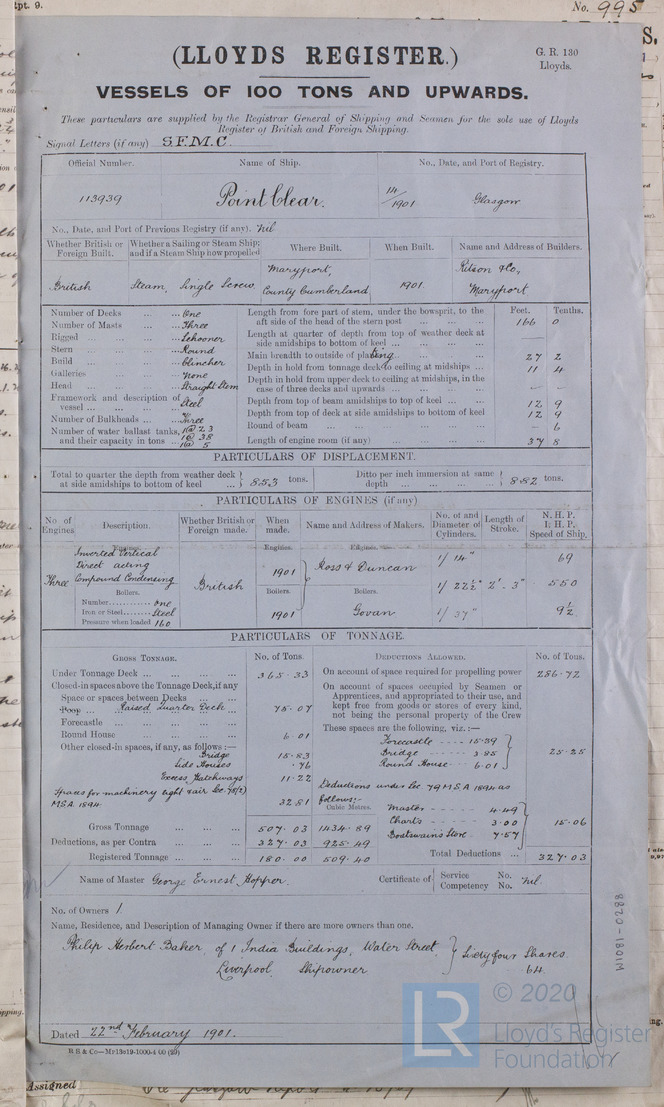 No. 995
(LLOYDS REGISTER.)
G. R. 130
Lloyds.
VESSELS OF 100 TONS AND UPWARDS.
These particulars are supplied by the Registrar General of Shipping and Seamen for the sole use of Lloyds
Register of British and Foreign Shipping.
Signal Letters (if any) S.F.M.C.
Official Number. Name of Ship. No., Date, and Port of Registry.
113939 Point Clear. 14/1901 Glasgow
No., Date, and Port of Previous Registry (if any). Nil
Whether British or Foreign Built. Whether a Sailing or Steam Ship; and if a Steam Ship how propelled Where Built. When Built. Name and Address of Builders.
British Steam, Single Screw Maryport, County Cumberland 1901. Ritson & Co, Maryport
Feet. Tenths.
Number of Decks ... ... One
Number of Masts ... ... Three
Rigged ... ... Schooner
Stern ... ... Round
Build ... ... Clincher
Galleries ... ... None
Head ... ... Straight Stem
Framework and description of vessel ... ... Steel
Number of Bulkheads ... Three
Number of water ballast tanks, and their capacity in tons ... 1@ 23 1@ 38 1@ 5
Length from fore part of stem, under the bowsprit, to the aft side of the head of the stern post ... 166 0
Length at quarter of depth from top of weather deck at side amidships to bottom of keel ... —
Main breadth to outside of plating ... 27 2
Depth in hold from tonnage deck to ceiling at midships ... 11 4
Depth in hold from upper deck to ceiling at midships, in the case of three decks and upwards ... — —
Depth from top of beam amidships to top of keel ... 12 9
Depth from top of deck at side amidships to bottom of keel 12 9
Round of beam ... - 6
Length of engine room (if any) ... 37 8
PARTICULARS OF DISPLACEMENT.
Total to quarter the depth from weather deck at side amidships to bottom of keel ... } 853 tons. Ditto per inch immersion at same depth ... } 8.82 tons.
PARTICULARS OF ENGINES (if any)
No. of Engines Description. Whether British or Foreign made. When made. Name and Address of Makers. No. of and Diameter of Cylinders. Length of Stroke. N. H. P. I. H. P. Speed of Ship.
Engines. Engines. Engines.
Three Inverted Vertical Direct acting Compound Condensing British 1901 Ross & Duncan 1/ 14" 69
Boilers. Boilers. Boilers. 1/ 22½" 2'. 3" 550
Number............ One
Iron or Steel........ Steel 1901 Govan 1/ 37" 9½
Pressure when loaded 160
PARTICULARS OF TONNAGE.
GROSS TONNAGE. No. of Tons. DEDUCTIONS ALLOWED. No. of Tons.
Under Tonnage Deck ... 365.33
Closed-in spaces above the Tonnage Deck, if any
Space or spaces between Decks ...
Poop ... Raised Quarter Deck ... 75.07
Forecastle ...
Round House ... 6.01
Other closed-in spaces, if any, as follows:—
Bridge 15.83
Side Houses .76
Excess Hatchways 11.22
Spaces for machinery light & air Sec 78(2) MSA 1894 32.81
Gross Tonnage ... 507.03 1434.89
Deductions, as per Contra ... 327.03 925.49
Registered Tonnage ... 180.00 509.40
On account of space required for propelling power 286.72
On account of spaces occupied by Seamen or
Apprentices, and appropriated to their use, and
kept free from goods or stores of every kind,
not being the personal property of the Crew
These spaces are the following, viz.:—
Forecastle - - - - 15.39
Bridge - - - - 3.85 } 25.25
Round House - - 6.01
Deductions under Sec 79 MSA 1894 as follows:-
Cubic Metres.
Master - - - - 4.49
Charts - - - - 3.00 } 15.06
Boatswain's Store - 7.57
Total Deductions ... 327.03
Name of Master George Ernest Hopper. Certificate of { Service No. Competency No. Nil.
No. of Owners 1
Name, Residence, and Description of Managing Owner if there are more owners than one.
Philip Herbert Baker, of 1 India Buildings, Water Street } Sixty four Shares
Liverpool Shipowner 64
Dated 22nd February 1901.
R B & Co—
W1081-0288
© 2020
LR
Lloyd's Register
Foundation
Assigned